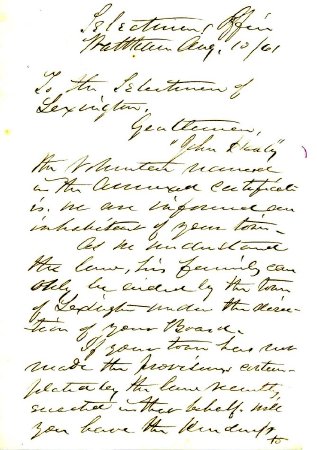 Selectmens Office
Waltham Aug. 10/61
To the Selectmen of
Lexington.
Gentlemen,
"John
the Volunteer named
in the annexed certificate
is, we are informed an
inhabitant of your town—
As we understand
the law, his family can
only be aided by the town
of Lexington under the direc-
tion of your Board.
If your town has not
made the provisions contem-
plated by the law recently
enacted in their behalf. will
you have the kindness
to